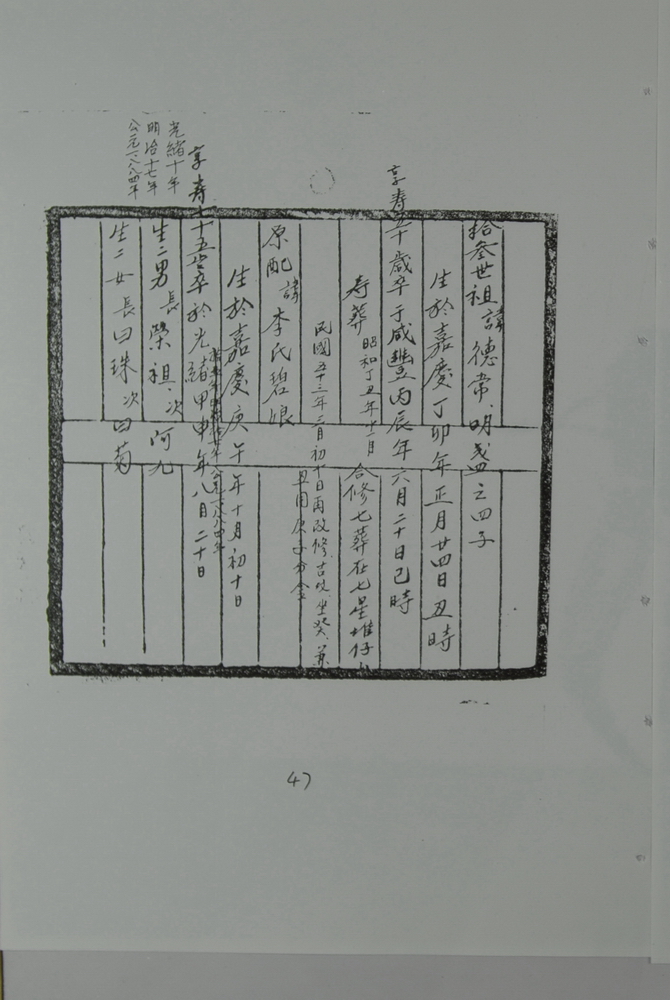 拾叁世祖諱德常、明盛之四子
生於嘉慶丁卯年正月廿四日丑時
享寿五十歲卒于咸豐丙辰年六月二十日己時
寿葬昭和丁丑年十二月合修七葬在七星堆仔山
民國五十三年二月初十日再改修、吉坟、坐癸、兼
丑用庚子分金
原配諱李氏碧娘
生於嘉慶庚午年十月初十日
享寿七十五岁卒於光緒甲申年八月二十日
光緒十年
明治十七年
公元一八八四年
生二男長榮祖、次阿九
生二女長曰珠次曰菊
47